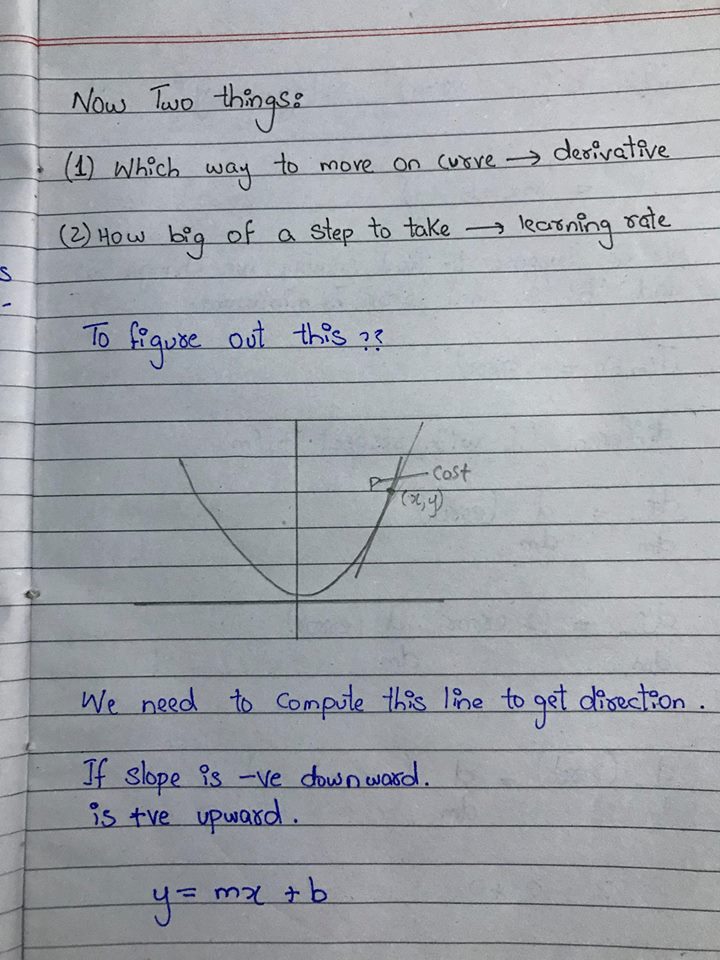 Now Two things:
(1) Which way to move on curve → derivative
(2) How big of a step to take → learning rate
s
-
To figure out this ??
cost
(x,y)
We need to compute this line to get direction.
If slope is -ve downward.
is +ve upward.
y = mx + b